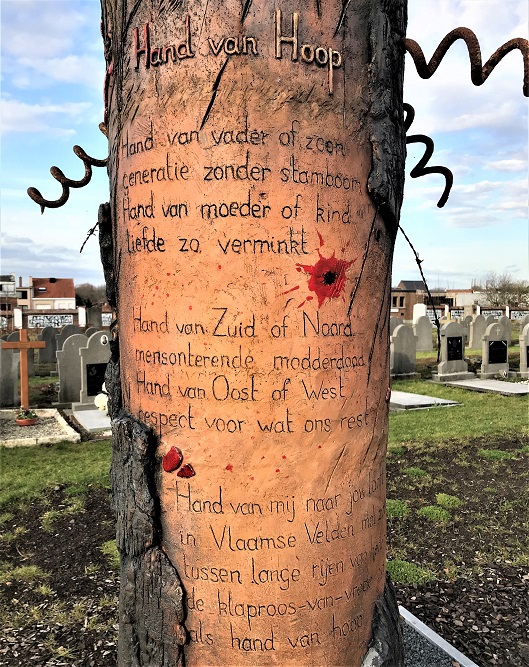 Hand van Hoop
Hand van vader of zoon
generatie zonder stamboom
Hand van moeder of kind
liefde zo verminkt
Hand van Zuid of Noord
mensonterende modderdood
Hand van Oost of West
respect voor wat ons rest
Hand van mij naar jou
in Vlaamse Velden
tussen lange rijen van
de klaproos-van-
als hand van hoop